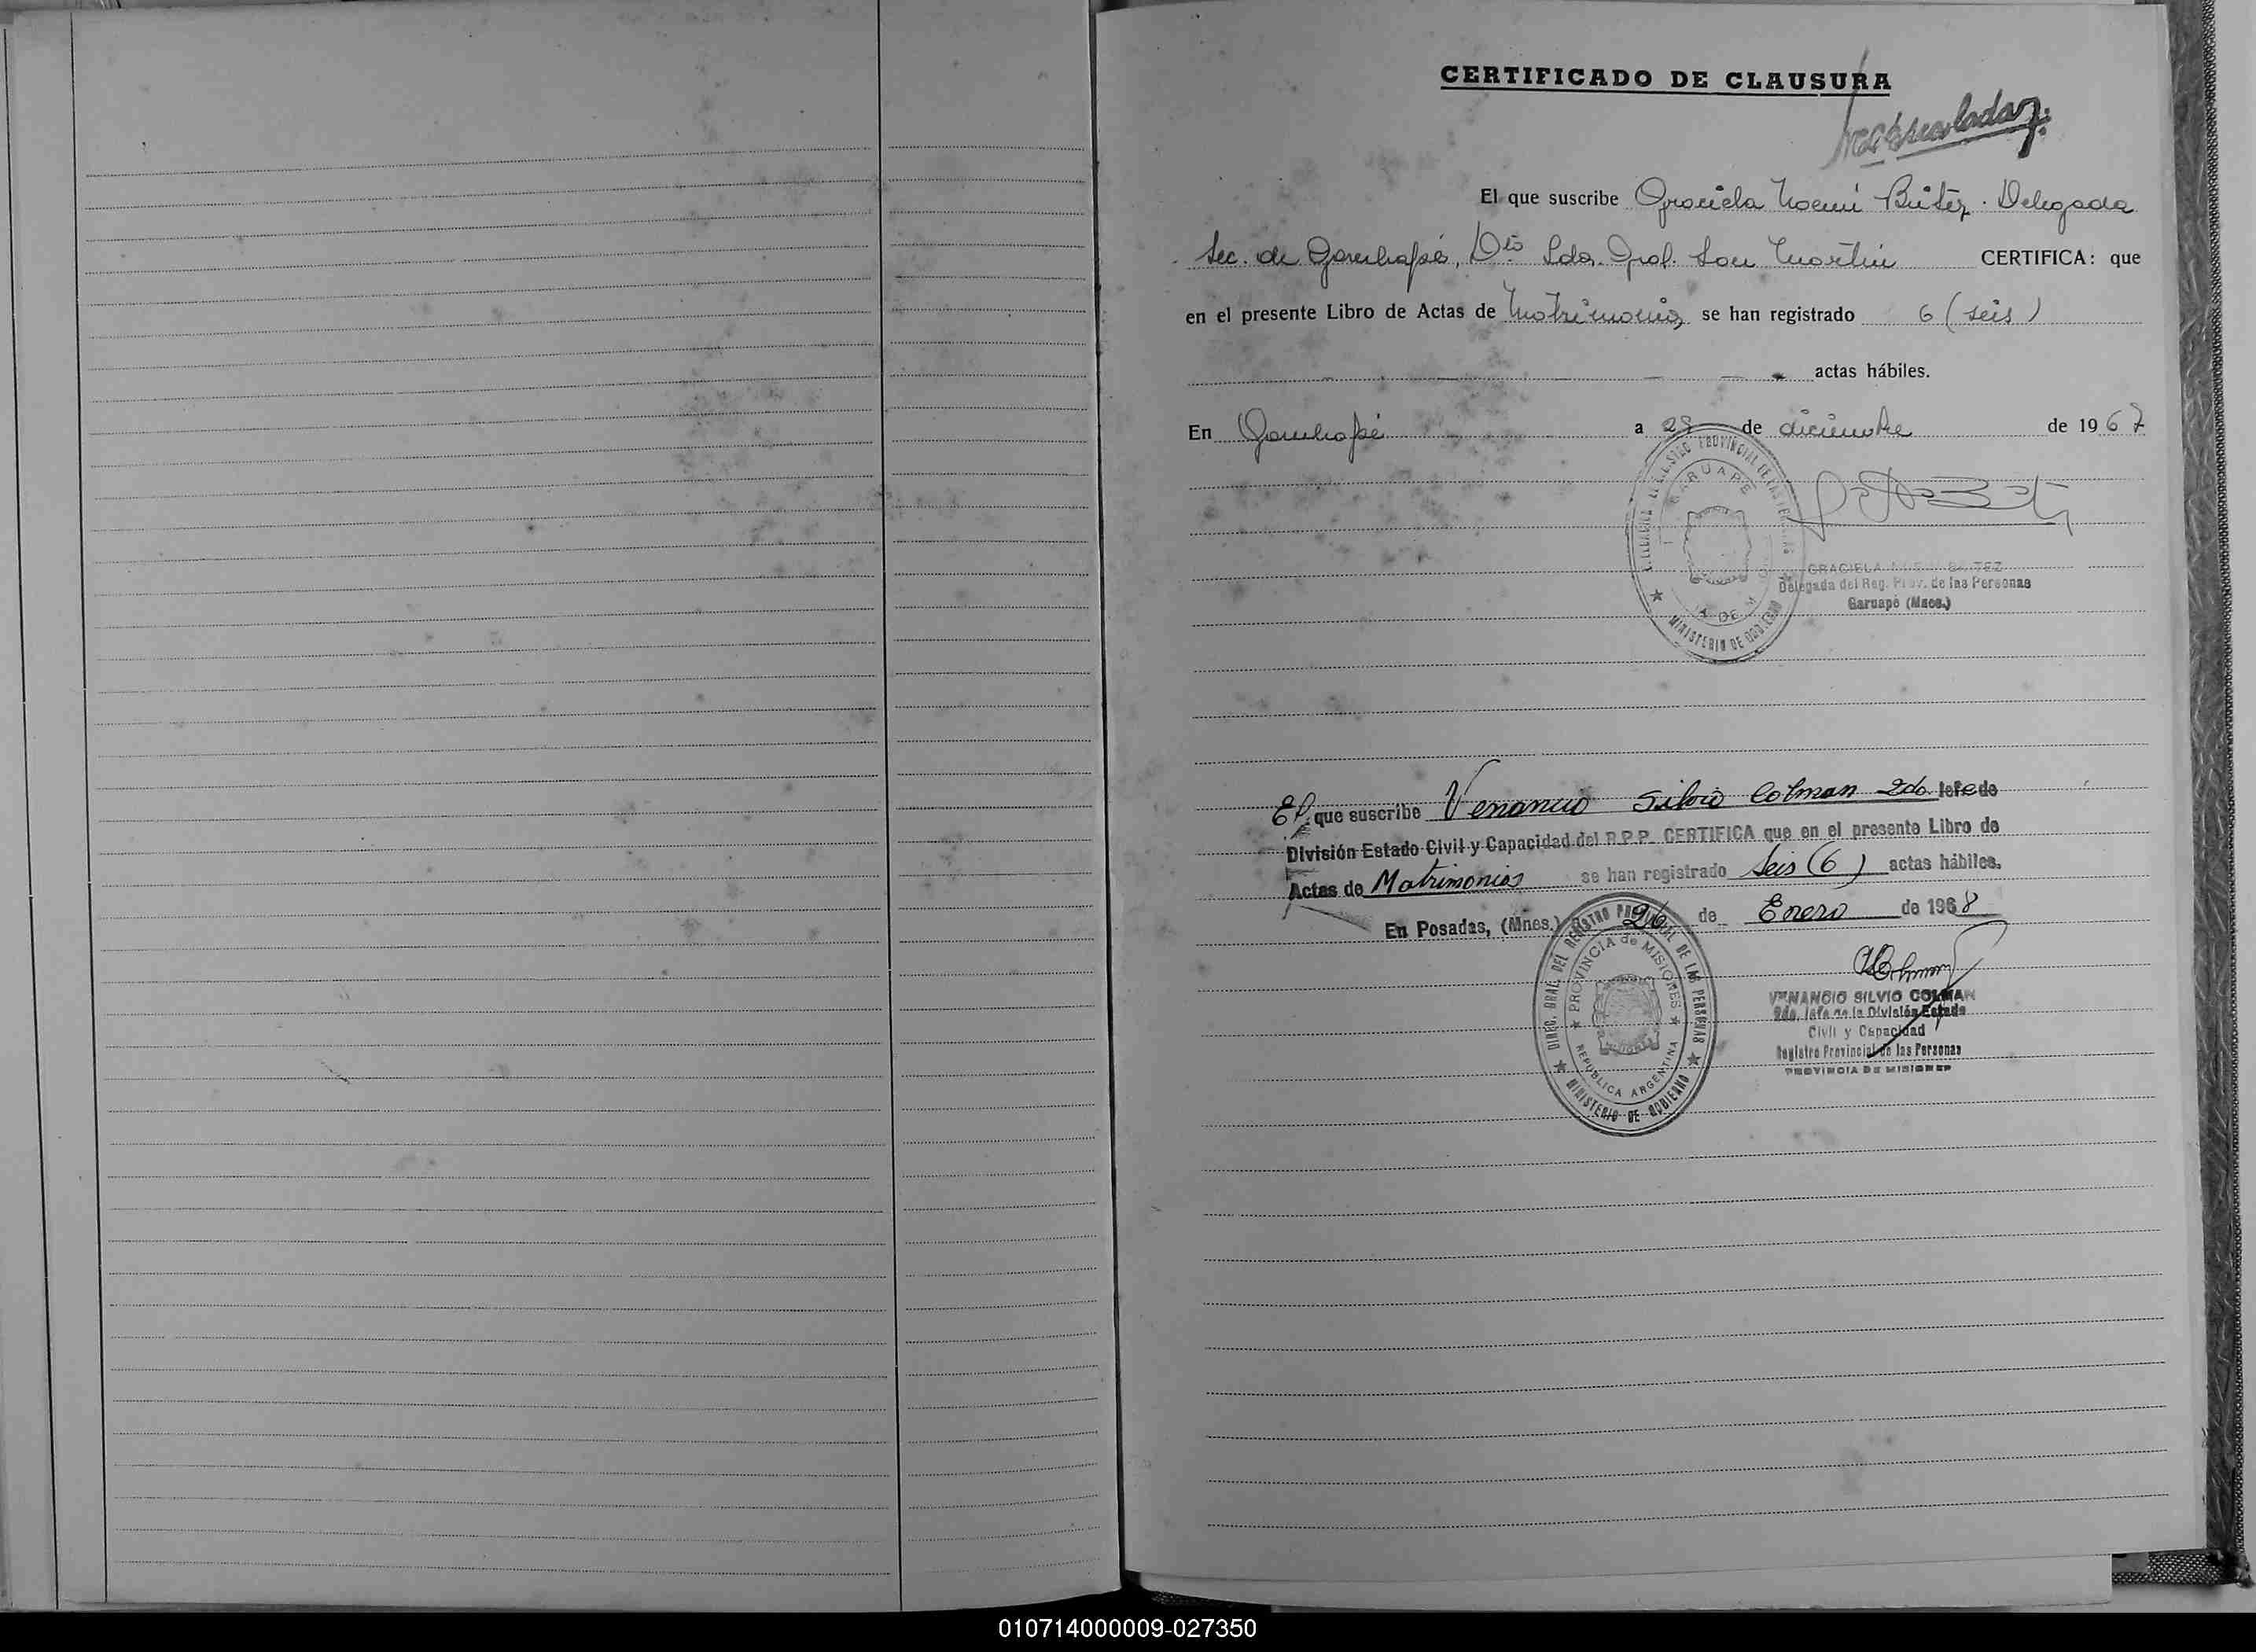 CERTIFICADO DE CLAUSURA
El que suscribe Graciela Noemi Beitez. Delegada
Sec. de Garuhapé, Dto Lda. Gral. San Martin CERTIFICA: que
en el presente Libro de Actas de Matrimonios se han registrado 6 (seis)
actas hábiles.
En Garuhapé a 29 de diciembre de 1967
GARUAPE
MINISTERIO DE GOBIERNO
GRACIELA
Delegada del Reg. Prov. de las Personas
Garuapé (Mnes.)
El que suscribe Venancio Silvio Colman 2do. Jefe de
División Estado Civil y Capacidad del R.P.P. CERTIFICA que en el presente Libro de
Actas de Matrimonios se han registrado Seis (6) actas hábiles.
En Posadas, (Mnes.) 26 de Enero de 1968
DIREC. GRAL. DEL REGISTRO PROVINCIAL DE LAS PERSONAS
PROVINCIA de MISIONES
REPUBLICA ARGENTINA
MINISTERIO DE GOBIERNO
VENANCIO SILVIO COLMAN
2do. Jefe de la División Estado
Civil y Capacidad
Registro Provincial de las Personas
PROVINCIA DE MISIONES
010714000009-027350